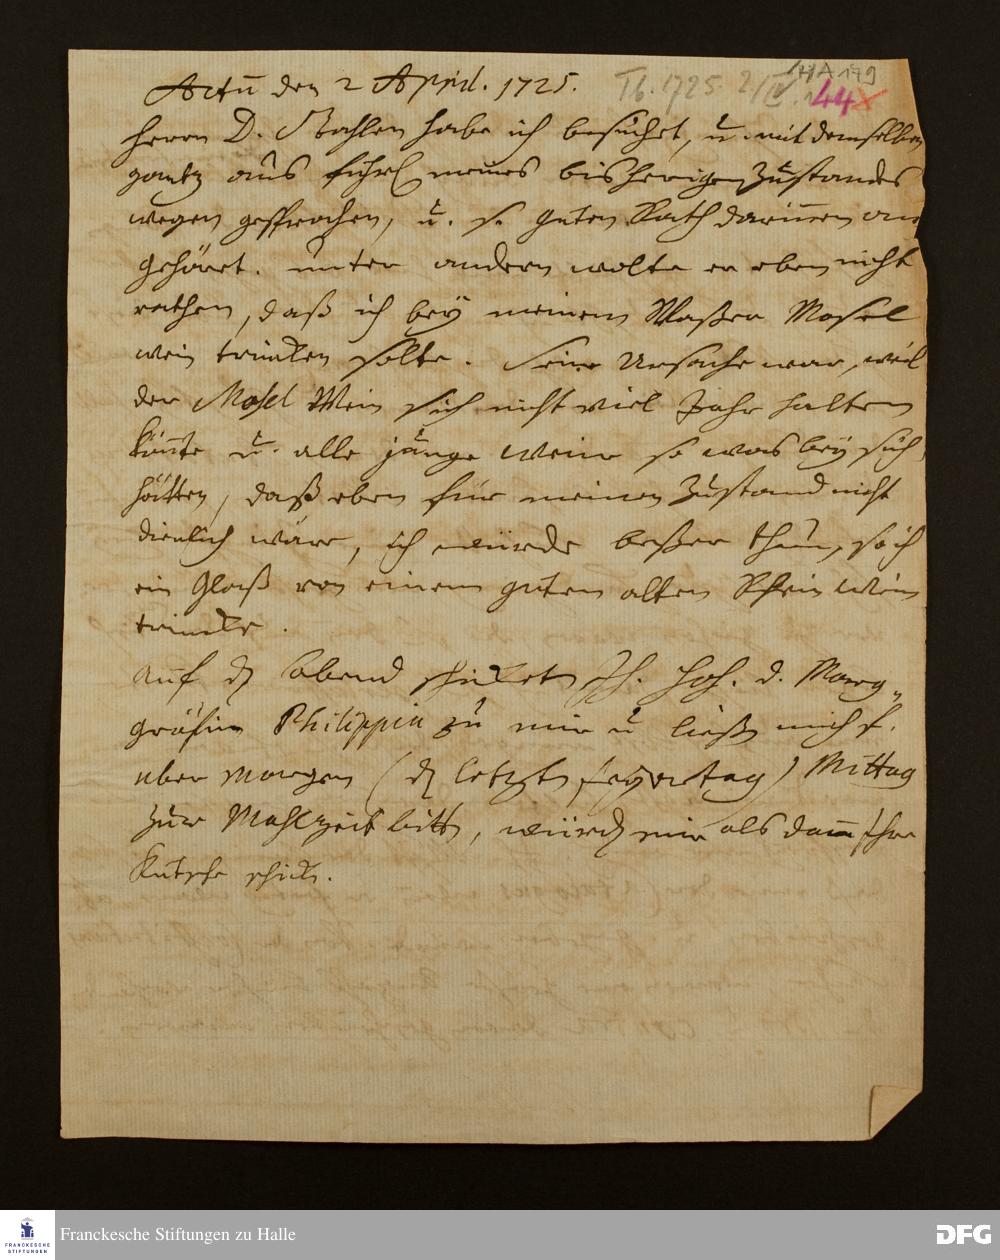 Actū den 2 April. 1725.
Tb. 1725. 2/IV. HA 179
144
Herrn D. Stahlen habe ich besuchet, u. mit demselben
gantz ausführl meines bisherigen Zustandes
wegen gesprochen, u. s. guten Rath darinnen an
gehöret. unter andern wolte er eben nicht
rathen, daß ich bey meinem Waßer Mosel
wein trincken solte. Seine Ursache war, weil
der Mosel Wein sich nicht viel Jahr halten
könte u. alle junge Weine so was bey sich
hätten, daß eben für meinen Zustand nicht
dienlich wäre, ich würde beßer thun, so ich
ein Glaß von einem guten alten Rhein wein
trincke.
Auf d Abend schicket Ih. Hoh. d. Marg„
gräfin Philippin zu mir u ließ mich f.
über morgen (d letzt feyertag) Mittag
zur Mahlzeit bitt, würd mir als dann Ihre
Kutsche schick.
Franckesche Stiftungen zu Halle
FRANCKESCHE
STIFTUNGEN
DFG